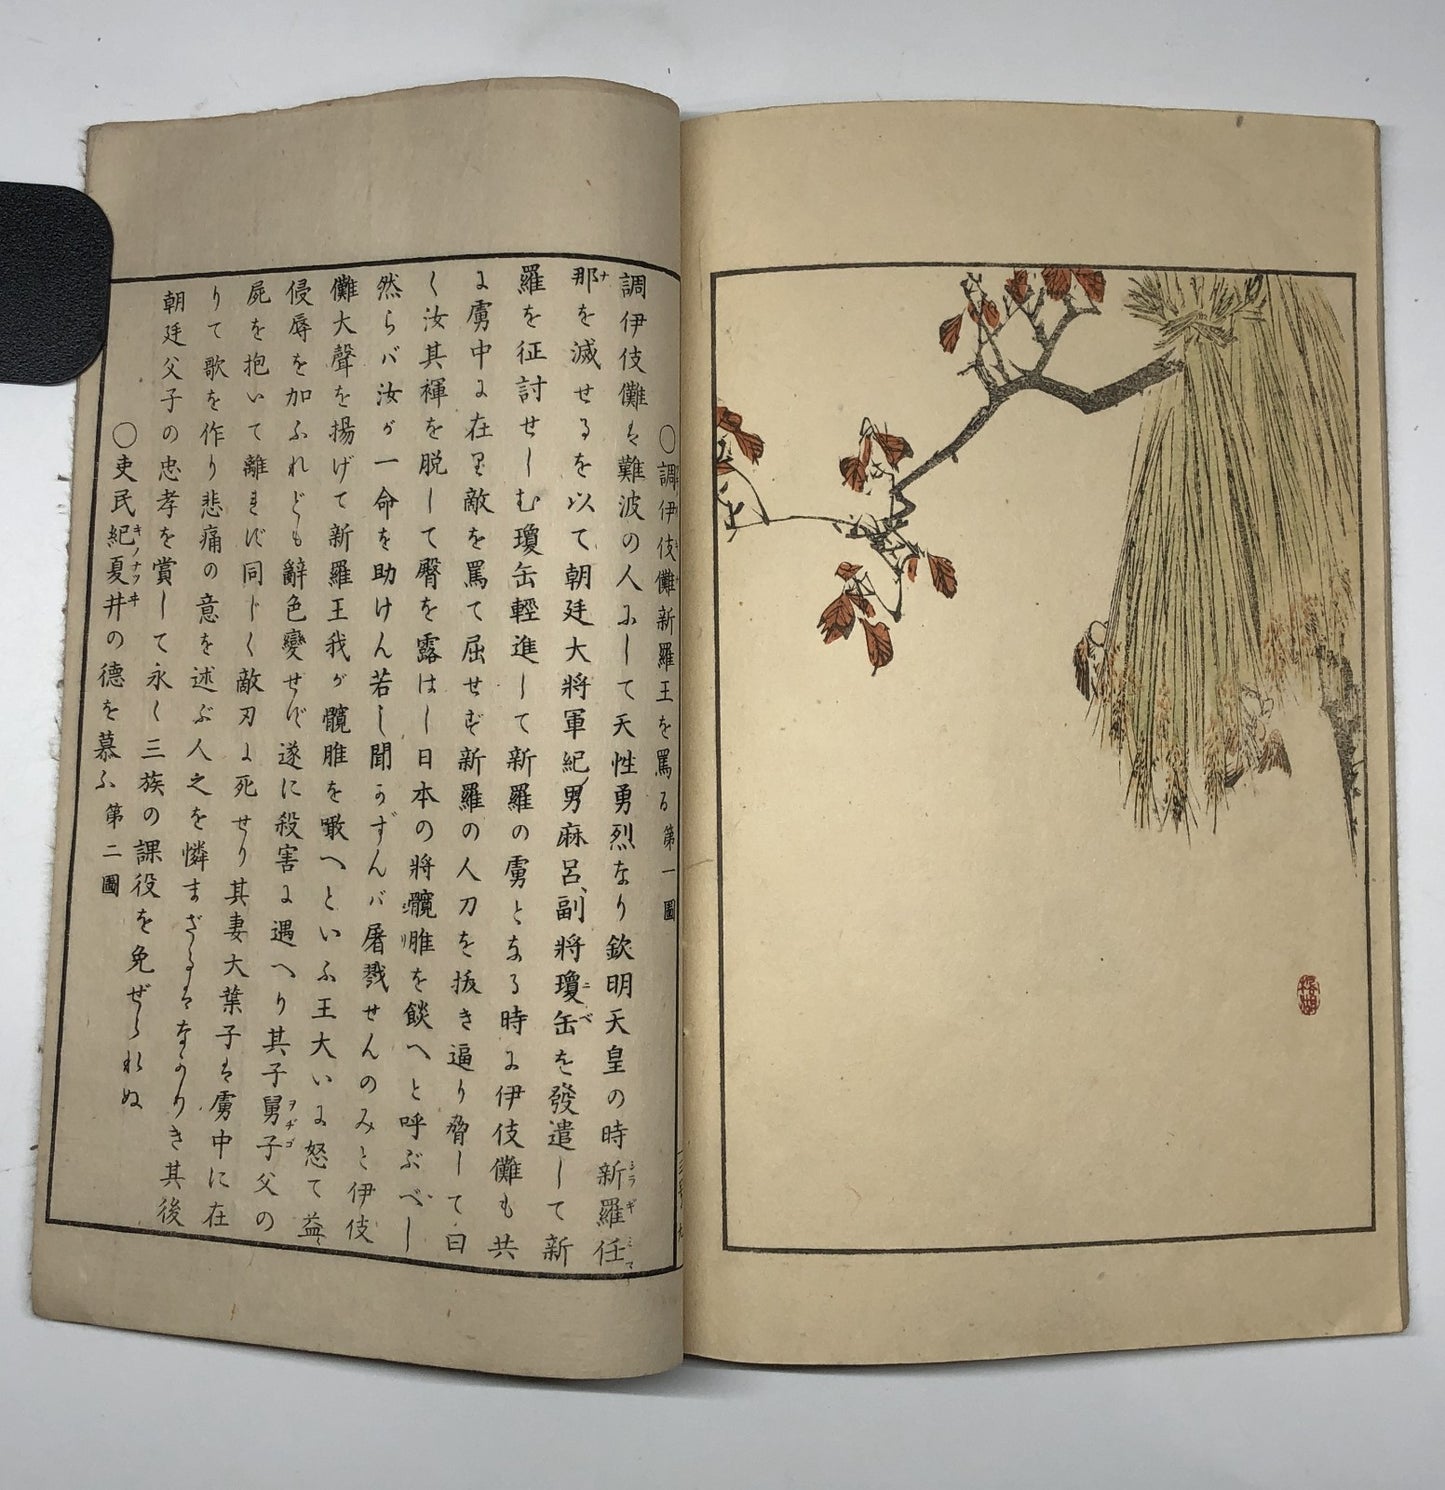 ○調伊伎儺新羅王を罵る 第一圖
調伊伎儺は難波の人にして天性勇烈なり欽明天皇の時新羅任
那を滅せるを以て朝廷大將軍紀男麻呂、副將瓊缶を發遣して新
羅を征討せしむ瓊缶輕進して新羅の虜となる時に伊伎儺も共
に虜中に在り敵を罵て屈せず新羅の人刀を抜き逼り脅して曰
く汝其褌を脱して臀を露はし日本の將臗脽を餤へと呼ぶべし
然らバ汝が一命を助けん若し聞かずんバ屠戮せんのみと伊伎
儺大聲を揚げて新羅王我が臗脽を噉へといふ王大いに怒て益〻
侵辱を加ふれども辭色變せず遂に殺害に遇へり其子舅子父の
屍を抱いて離れず同じく敵刃に死せり其妻大葉子は虜中に在
りて歌を作り悲痛の意を述ぶ人之を憐まざるはなかりき其後
朝廷父子の忠孝を賞して永く三族の課役を免ぜられぬ
○吏民紀夏井の德を慕ふ 第二圖